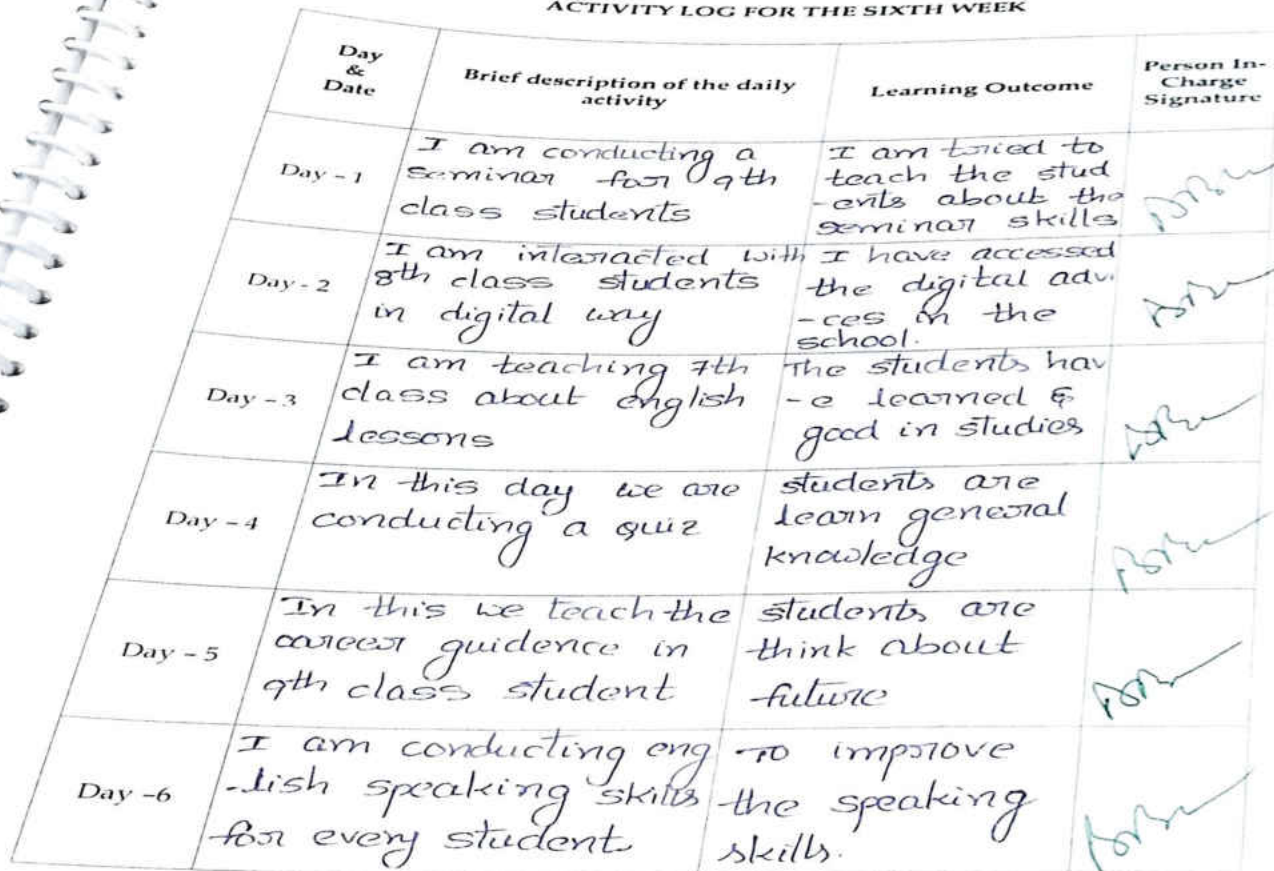 ACTIVITY LOG FOR THE SIXTH WEEK
Day
&
Date
Brief description of the daily
activity
Learning Outcome
Person In-
Charge
Signature
Day - 1
I am conducting a
seminar for 9th
class students
I am tried to
teach the stud
-ents about the
seminar skills
Day - 2
I am interacted with
8th class students
in digital way
I have accessed
the digital adv
-ces in the
school.
Day - 3
I am teaching 7th
class about english
lessons
The students hav
-e learned &
good in studies
Day - 4
In this day we are
conducting a quiz
students are
learn general
knowledge
Day - 5
In this we teach the
career guidence in
9th class student
students are
think about
future
Day -6
I am conducting eng
-lish speaking skills
for every student
To improve
the speaking
skills.